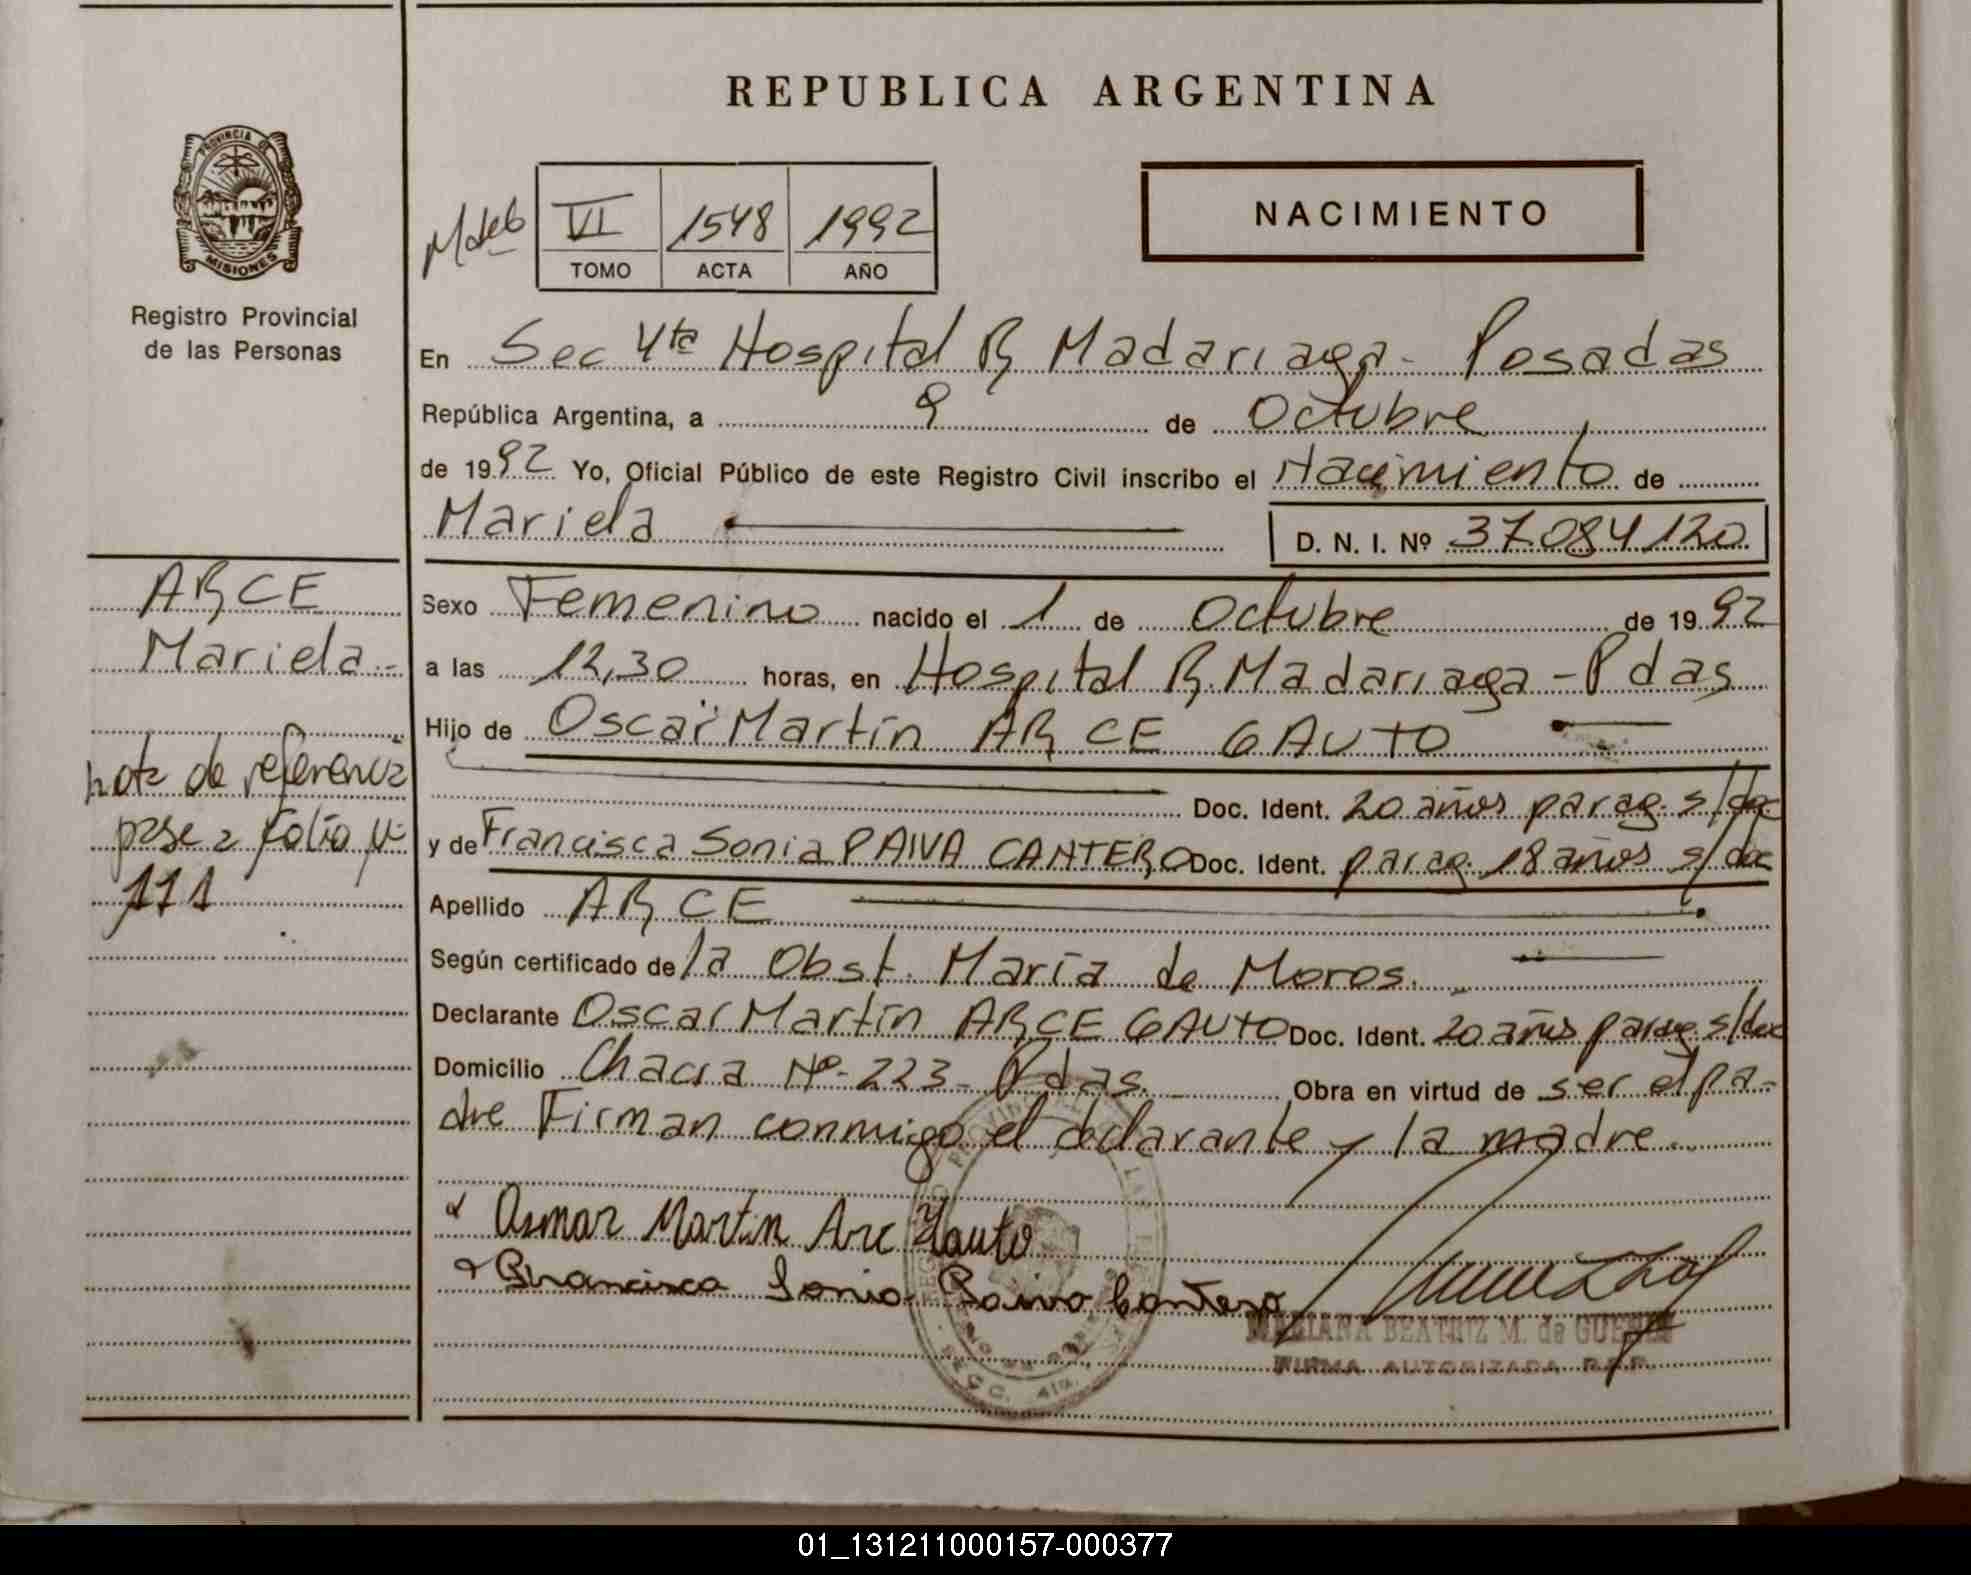 REPUBLICA ARGENTINA
PROVINCIA DE
MISIONES
Registro Provincial
de las Personas
VI 1548 1992
TOMO ACTA AÑO
NACIMIENTO
En Sec 4ta Hospital R Madariaga - Posadas
República Argentina, a 9 de Octubre
de 1992 Yo, Oficial Público de este Registro Civil inscribo el Nacimiento de
Mariela
D. N. I. Nº 37.084.120
ARCE
Mariela.-
nota de referencia
pase a folio Nº
111
Sexo Femenino nacido el 1 de Octubre de 1992
a las 12,30 horas, en Hospital R. Madariaga - Pdas
Hijo de Oscar Martín ARCE GAUTO
Doc. Ident. 20 años parag. s/doc
y de Francisca Sonia PAIVA CANTERO Doc. Ident. parag. 18 años s/doc
Apellido ARCE
Según certificado de la Obst. María de Moros.
Declarante Oscar Martín ARCE GAUTO Doc. Ident. 20 años parag. s/doc
Domicilio Chacra Nº- 223- Pdas. Obra en virtud de ser el pa-
dre Firman conmigo el declarante y la madre.
Osmar Martin Arc Gauto
Francisca Sonia Paiva Cantero
MARIANA BEATRIZ M. de
FIRMA AUTORIZADA R.P.P.
SECC. 4ta.
01_131211000157-000377